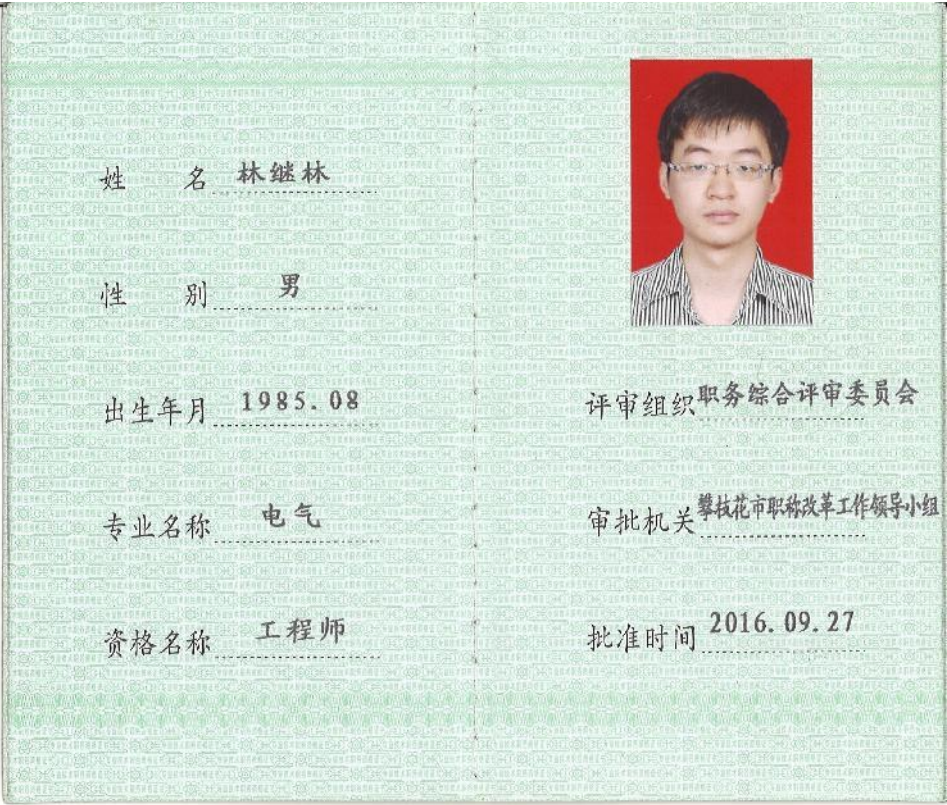 姓名 林继林
性别 男
出生年月 1985.08
专业名称 电气
资格名称 工程师
评审组织 职务综合评审委员会
审批机关 攀枝花市职称改革工作领导小组
批准时间 2016.09.27